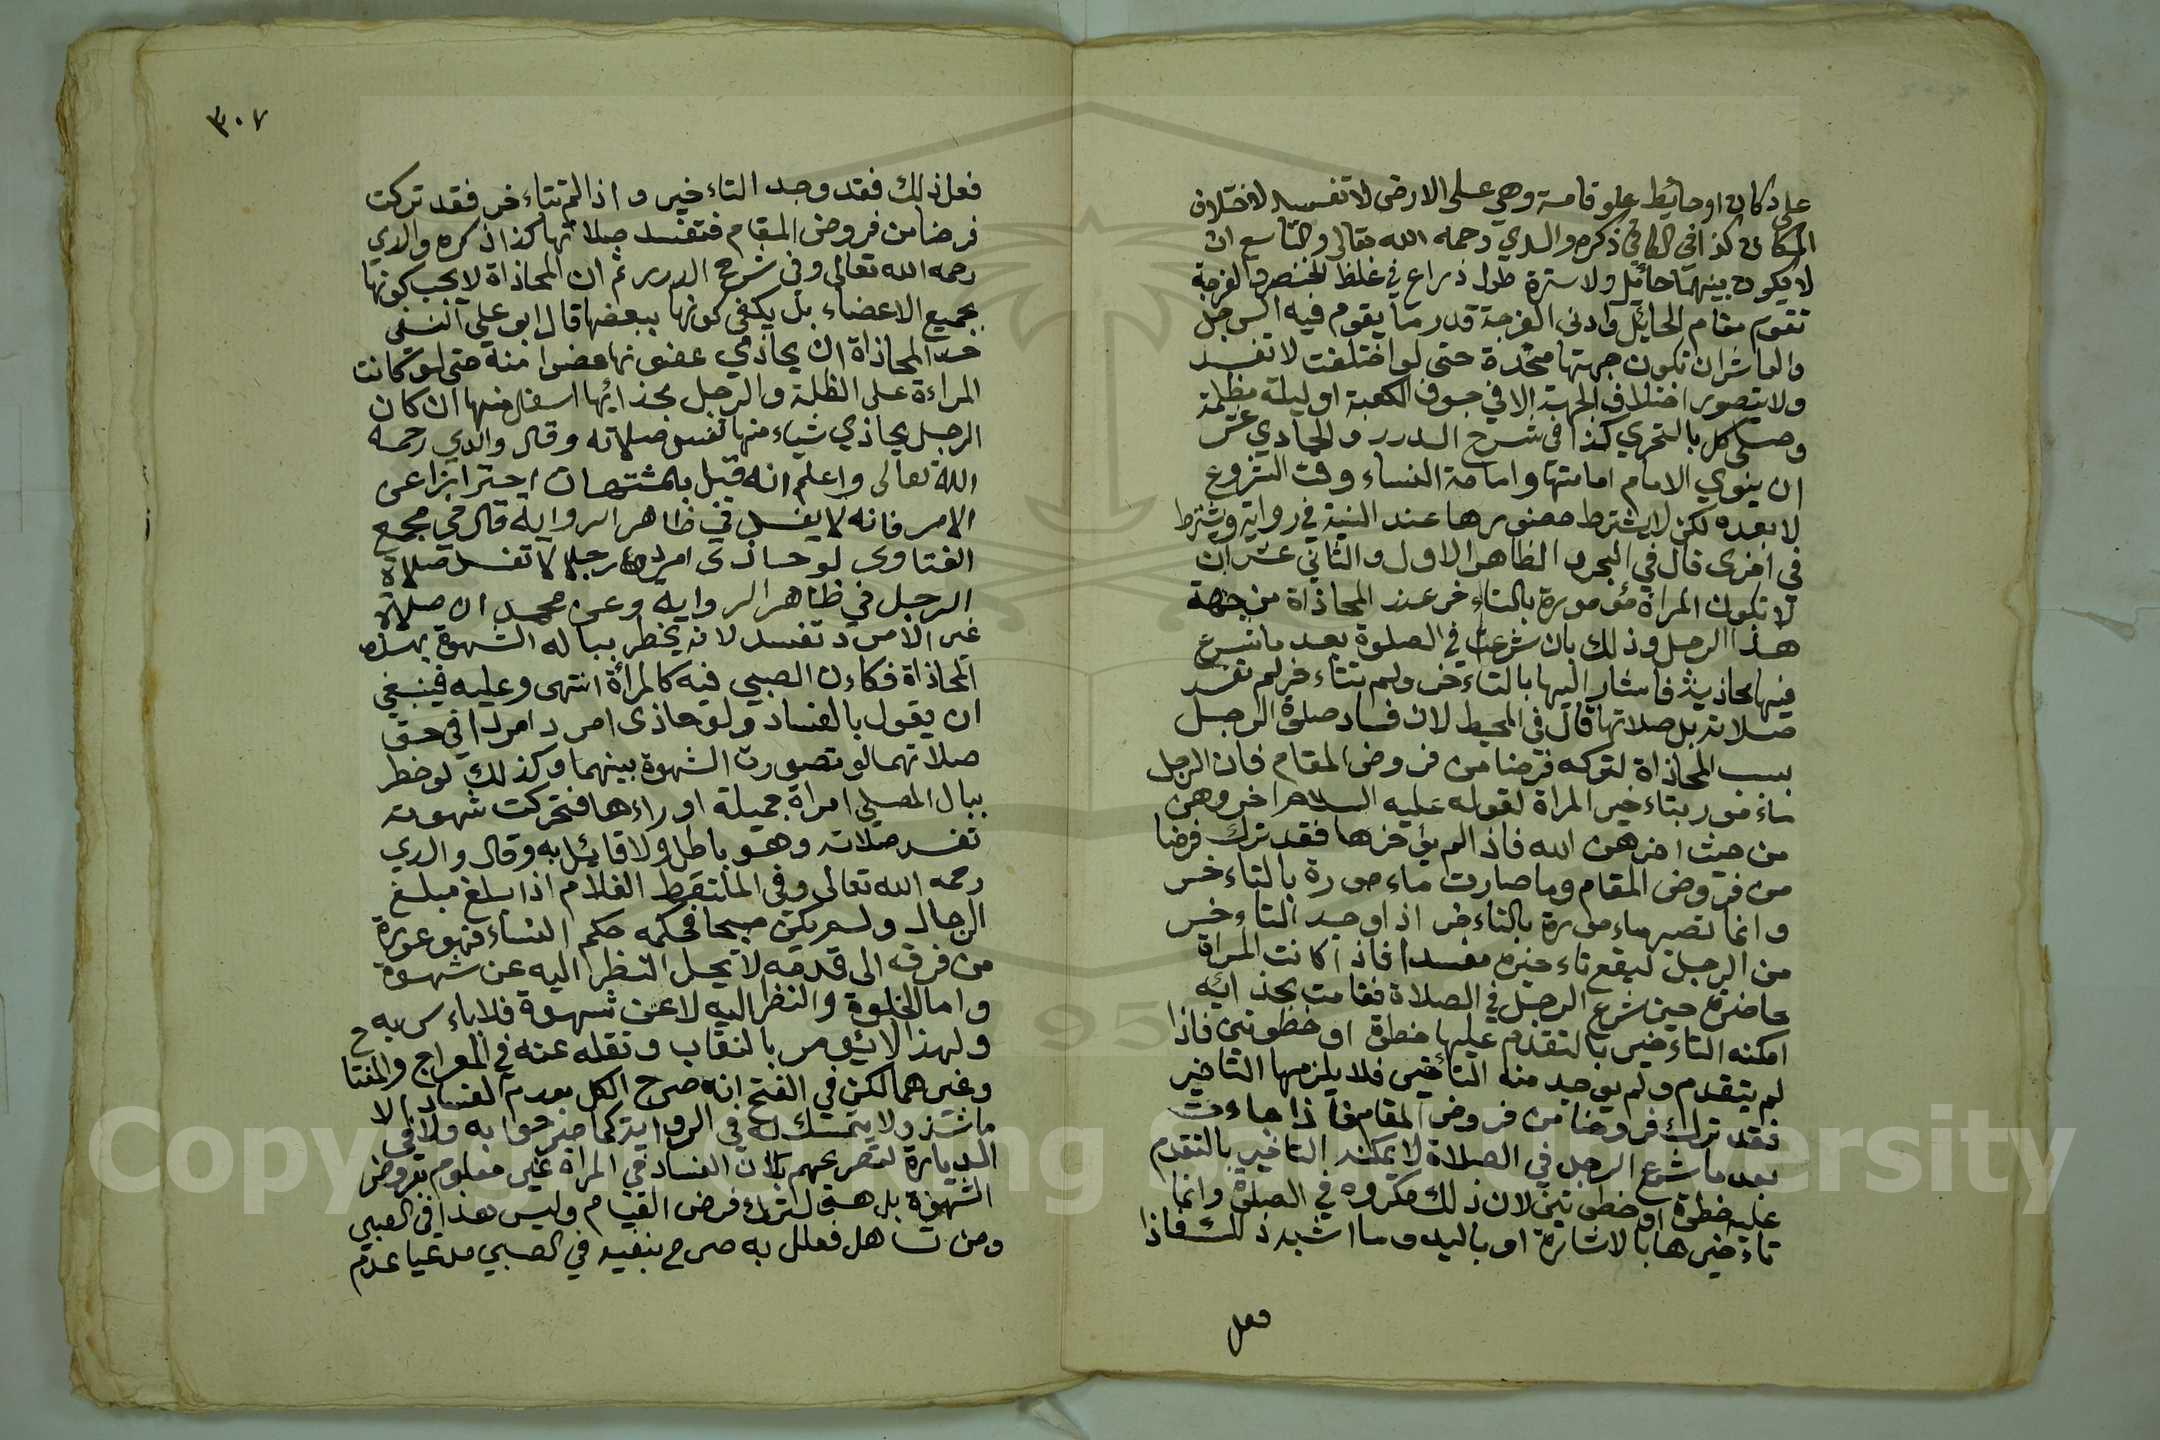 على دكان او حائط علو قامة وهي على الارض لا تفسد لاختلاف
المكان كذا في الكافي ذكره والدي رحمه الله تعالى والتاسع ان
لا يكون بينهما حائل ولا سترة طول ذراع في غلظ الخنصر والفرجة
تقوم مقام الحائل وادنى الفرجة قدر ما يقوم فيه الرجل
والعاشران تكون جهتها متحدة حتى لو اختلفت لا تفسد
ولا يتصور اختلاف الجهة الا في جوف الكعبة او ليلة مظلمة
وصلى كل بالتحري كذا في شرح الدرر والحادي عشر
ان ينوي الامام امامتها وامامة النساء وقت الشروع
لا بعده لكن لا يشترط حضورها عند النية في رواية ويشترط
في اخرى قال في البحر و الظاهر الاول والثاني عشر ان
لا تكون المراة مؤمورة بالتاءخر عند المحاذاة من جهة
هذا الرجل وذلك بان شرعت في الصلوة بعد ما شرع
فيها بحاذيته فاشار اليها بالتاءخر ولم تتاءخر لم تفسد
صلاته بل صلاتها قال في المحيط لان فساد صلوة الرجل
بسبب المحاذاة لتركه فرضا من فروض المقام فان الرجل
ماءمور بتاءخير المراة لقوله عليه السلام اخروهن
من حيث اخرهن الله فاذا لم يؤخرها فقد ترك فرضا
من فروض المقام وما صارت ماءمورة بالتاءخر
وانما تصير ماءمورة بالتاءخر اذا وجد التاءخر
من الرجل ليقع تاءخره مفسدا فاذا كانت المراة
حاضرة حين شرع الرجل في الصلاة فقامت بحذائه
امكنه التاءخير بالتقدم عليها خطوة او خطوتين فاذا
لم يتقدم ولم يوجد منه التأخير فلا يلزمها التاخير
فقد ترك فروضا من فروض المقام فاذا جاءت
بعد ما شرع الرجل في الصلاة لا يمكنه التاخير بالتقدم
عليه خطوة او خطوتين لان ذلك مكروه في الصلوة وانما
تاءخيرها بالاشارة او باليد وما اشبه ذلك فاذا
فعل
٣٠٧
فعل ذلك فقد وجد التاءخير و اذا لم تتاءخر فقد تركت
فرضا من فروض المقام فتفسد صلاتها كذا ذكره والدي
رحمه الله تعالى وفي شرح الدرر ثم ان المحاذاة لا يجب كونها
بجميع الاعضاء بل يكفي كونها ببعضها قال ابو علي النسفي
حد المحاذاة ان يحاذي عضو نها عضوا منه حتى لو كانت
المراءة على الظلة والرجل بحذائها اسفل منها ان كان
الرجل يحاذي شياء منها تفسد صلاته وقال والدي رحمه
الله تعالى واعلم انه قيل بالمشتهات احترازا عن
الامر فانه لا يفسد في ظاهر الرواية قال في مجمع
الفتاوى لو حاذى امرد رجلا لا تفسد صلاة
الرجل في ظاهر الرواية وعن محمد ان صلاة
غير الامرد تفسد لانه يخطر بباله الشهوة بهذه
المحاذاة فكاءن الصبي فيه كالمرأة انتهى وعليه فينبغي
ان يقول بالفساد ولو حاذى امرد امردا في حق
صلاتهما لو تصورت الشهوة بينهما وكذلك لو خطر
ببال المصلي امراة جميلة او راءها فتحركت شهوته
تفسد صلاته وهو باطل ولا قائل به وقال والدي
رحمه الله تعالى وفي الملتقط الغلام اذا بلغ مبلغ
الرجال ولم يكن صبيحا فحكمه حكم النساء فهو عورة
من فرقه الى قدمه لا يحل النظر اليه عن شهوة
واما الخلوة والنظر اليه لا عن شهوة فلا باءس به ح
ولهذا لا يؤمر بالنقاب ونقله عنه في المعراج والمفتا
وغيرهما لكن في الفتح انه صرح الكل بعدم الفساد الا
ما شذ ولا يتمسك له في الرواية كما صرحوا به ولا في
الدياره لتصريحهم بان الفساد في المراة غير معلوم بعروض
الشهوة بل هو لترك فرض القيام وليس هذا في الصبي
ومن تساهل فعلل به صرح بنفيه في الصبي مدعيا عدم
Copyright © King Saud University